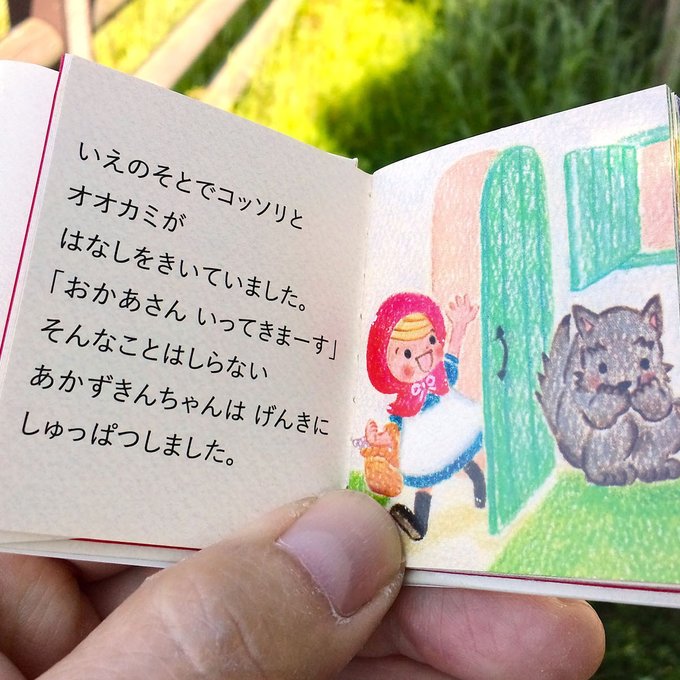 いえのそとでコッソリと
オオカミが
はなしをきいていました。
「おかあさん いってきまーす」
そんなことはしらない
あかずきんちゃんは げんきに
しゅっぱつしました。